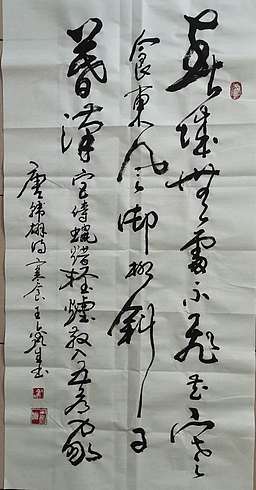 春城無處不飛花寒
食東風御柳斜日
暮漢宮傳蠟燭輕煙散入五侯家
唐韓翃詩寒食王生書